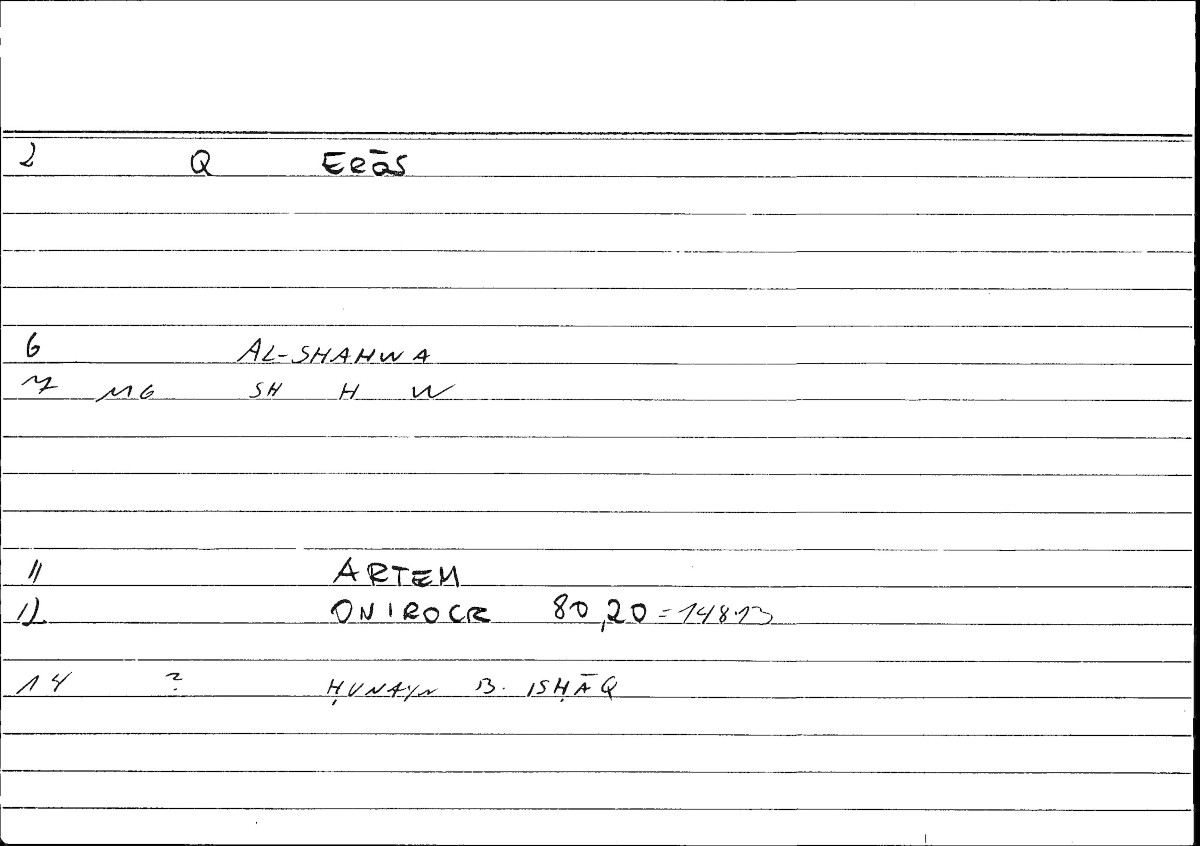 2 Q Eрāς
6 AL-SHAHWA
7 MG SH H W
11 ARTEM
12 ONIROCR 80,20 = 148.13
14 ? ḤUNAYN B. ISḤĀQ